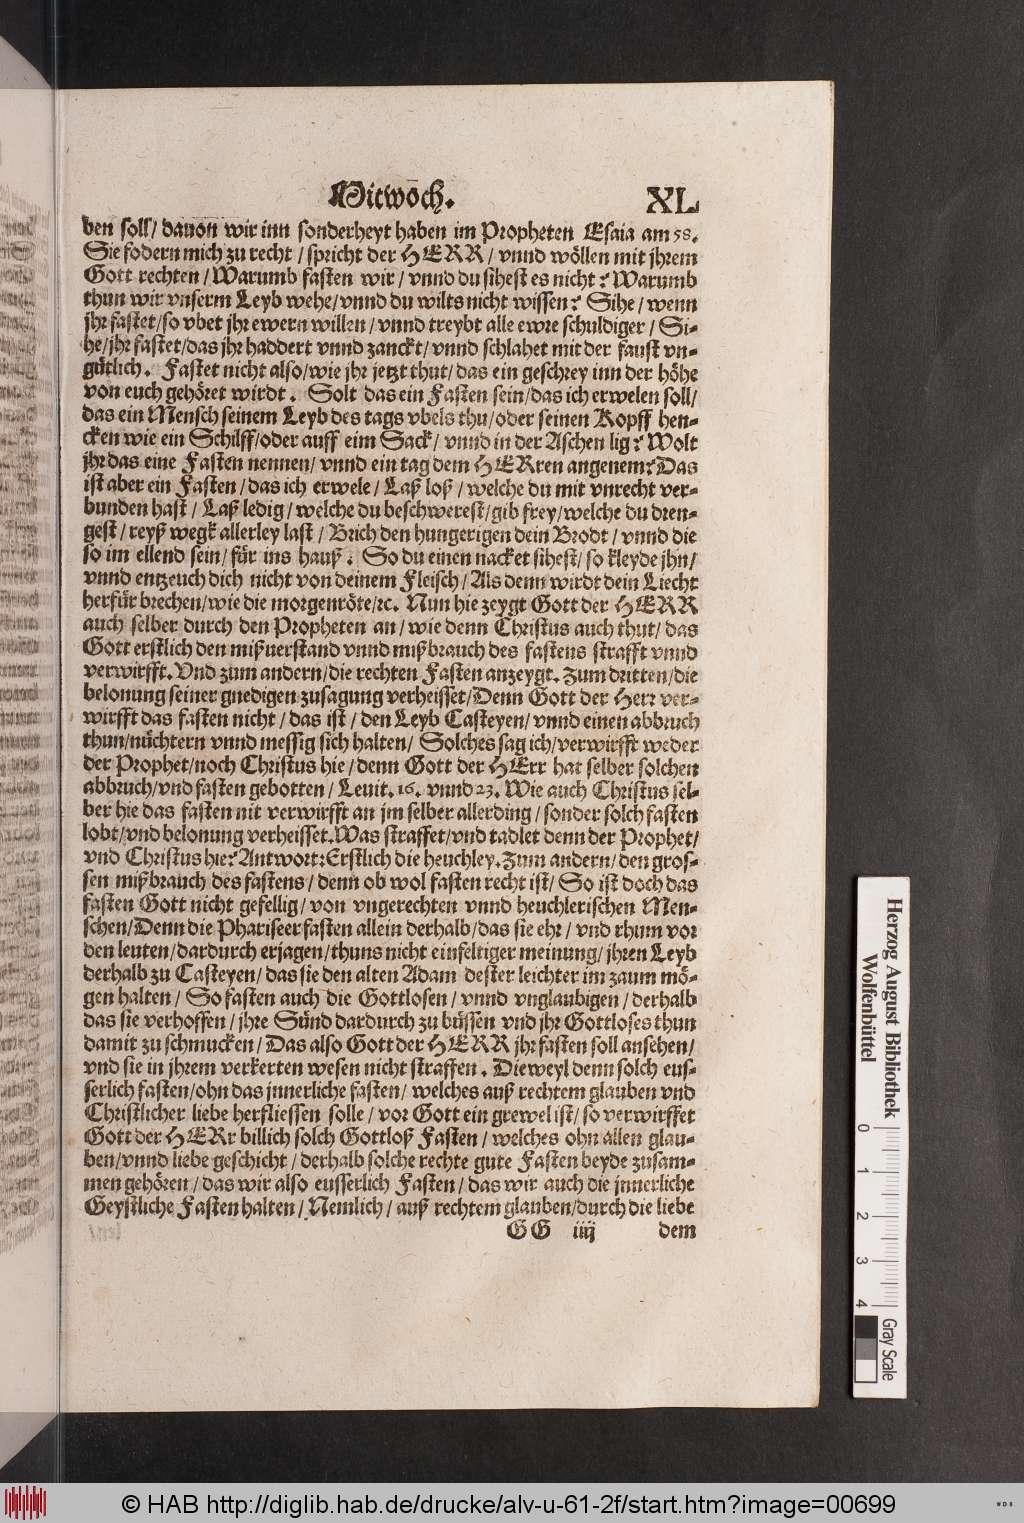 Mitwoch. XL
ben soll/ dauon wir inn sonderheyt haben im Propheten Esaia am 58.
Sie fodern mich zu recht / spricht der HERR / vnnd wöllen mit jhrem
Gott rechten / Warumb fasten wir / vnnd du sihest es nicht? Warumb
thun wir vnserm Leyb wehe/ vnnd du wilts nicht wissen? Sihe / wenn
jhr fastet/ so vbet jhr ewern willen / vnnd treybt alle ewre schuldiger / Si-
he/ jhr fastet/ das jhr haddert vnnd zanckt/ vnnd schlahet mit der faust vn-
gütlich. Fastet nicht also/ wie jhr jetzt thut/ das ein geschrey inn der höhe
von euch gehöret wirdt. Solt das ein Fasten sein/ das ich erwelen soll/
das ein Mensch seinem Leyb des tags vbels thu/ oder seinen Kopff hen-
cken wie ein Schilff/ oder auff eim Sack/ vnnd in der Aschen lig? Wolt
jhr das eine Fasten nennen/ vnnd ein tag dem HERren angenem? Das
ist aber ein Fasten / das ich erwele / Laß loß / welche du mit vnrecht ver-
bunden hast / Laß ledig / welche du beschwerest/ gib frey/ welche du dren-
gest / reyß wegk allerley last / Brich den hungerigen dein Brodt / vnnd die
so im ellend sein/ für ins hauß. So du einen nacket sihest/ so kleyde jhn/
vnnd entzeuch dich nicht von deinem Fleisch / Als denn wirdt dein Liecht
herfür brechen/ wie die morgenröte/ ꝛc. Nun hie zeygt Gott der HERR
auch selber durch den Propheten an / wie denn Christus auch thut/ das
Gott erstlich den mißuerstand vnnd mißbrauch des fastens strafft vnnd
verwirfft. Vnd zum andern/ die rechten Fasten anzeygt. Zum dritten/ die
belonung seiner gnedigen zusagung verheisset/ Denn Gott der Herr ver-
wirfft das fasten nicht / das ist / den Leyb Casteyen/ vnnd einen abbruch
thun/ nüchtern vnnd messig sich halten/ Solches sag ich/ verwirfft weder
der Prophet/ noch Christus hie / denn Gott der HErr hat selber solchen
abbruch/ vnd fasten gebotten / Leuit. 16. vnnd 23. Wie auch Christus sel-
ber hie das fasten nit verwirfft an jm selber allerding / sonder solch fasten
lobt/ vnd belonung verheisset. Was straffet/ vnd tadlet denn der Prophet/
vnd Christus hie? Antwort: Erstlich die heuchley. Zum andern/ den gros-
sen mißbrauch des fastens / denn ob wol fasten recht ist/ So ist doch das
fasten Gott nicht gefellig/ von vngerechten vnnd heuchlerischen Men-
schen/ Denn die Phariseer fasten allein derhalb/ das sie ehr / vnd rhum vor
den leuten/ dardurch erjagen/ thuns nicht einfeltiger meinung/ jhren Leyb
derhalb zu Casteyen/ das sie den alten Adam dester leichter im zaum mö-
gen halten / So fasten auch die Gottlosen / vnnd vnglaubigen / derhalb
das sie verhoffen / jhre Sünd dardurch zu büssen vnd jhr Gottloses thun
damit zu schmucken / Das also Gott der HERR jhr fasten soll ansehen/
vnd sie in jhrem verkerten wesen nicht straffen. Dieweyl denn solch eus-
serlich fasten/ ohn das jnnerliche fasten / welches auß rechtem glauben vnd
Christlicher liebe herfliessen solle / vor Gott ein grewel ist / so verwirffet
Gott der HERr billich solch Gottloß Fasten / welches ohn allen glau-
ben/ vnnd liebe geschicht / derhalb solche rechte gute Fasten beyde zusam-
men gehören / das wir also eusserlich Fasten / das wir auch die jnnerliche
Geystliche Fasten halten / Nemlich / auß rechtem glauben/ durch die liebe
GG iiij dem
Herzog August Bibliothek
Wolfenbüttel
0 1 2 3 4
Gray Scale
© HAB http://diglib.hab.de/drucke/alv-u-61-2f/start.htm?image=00699